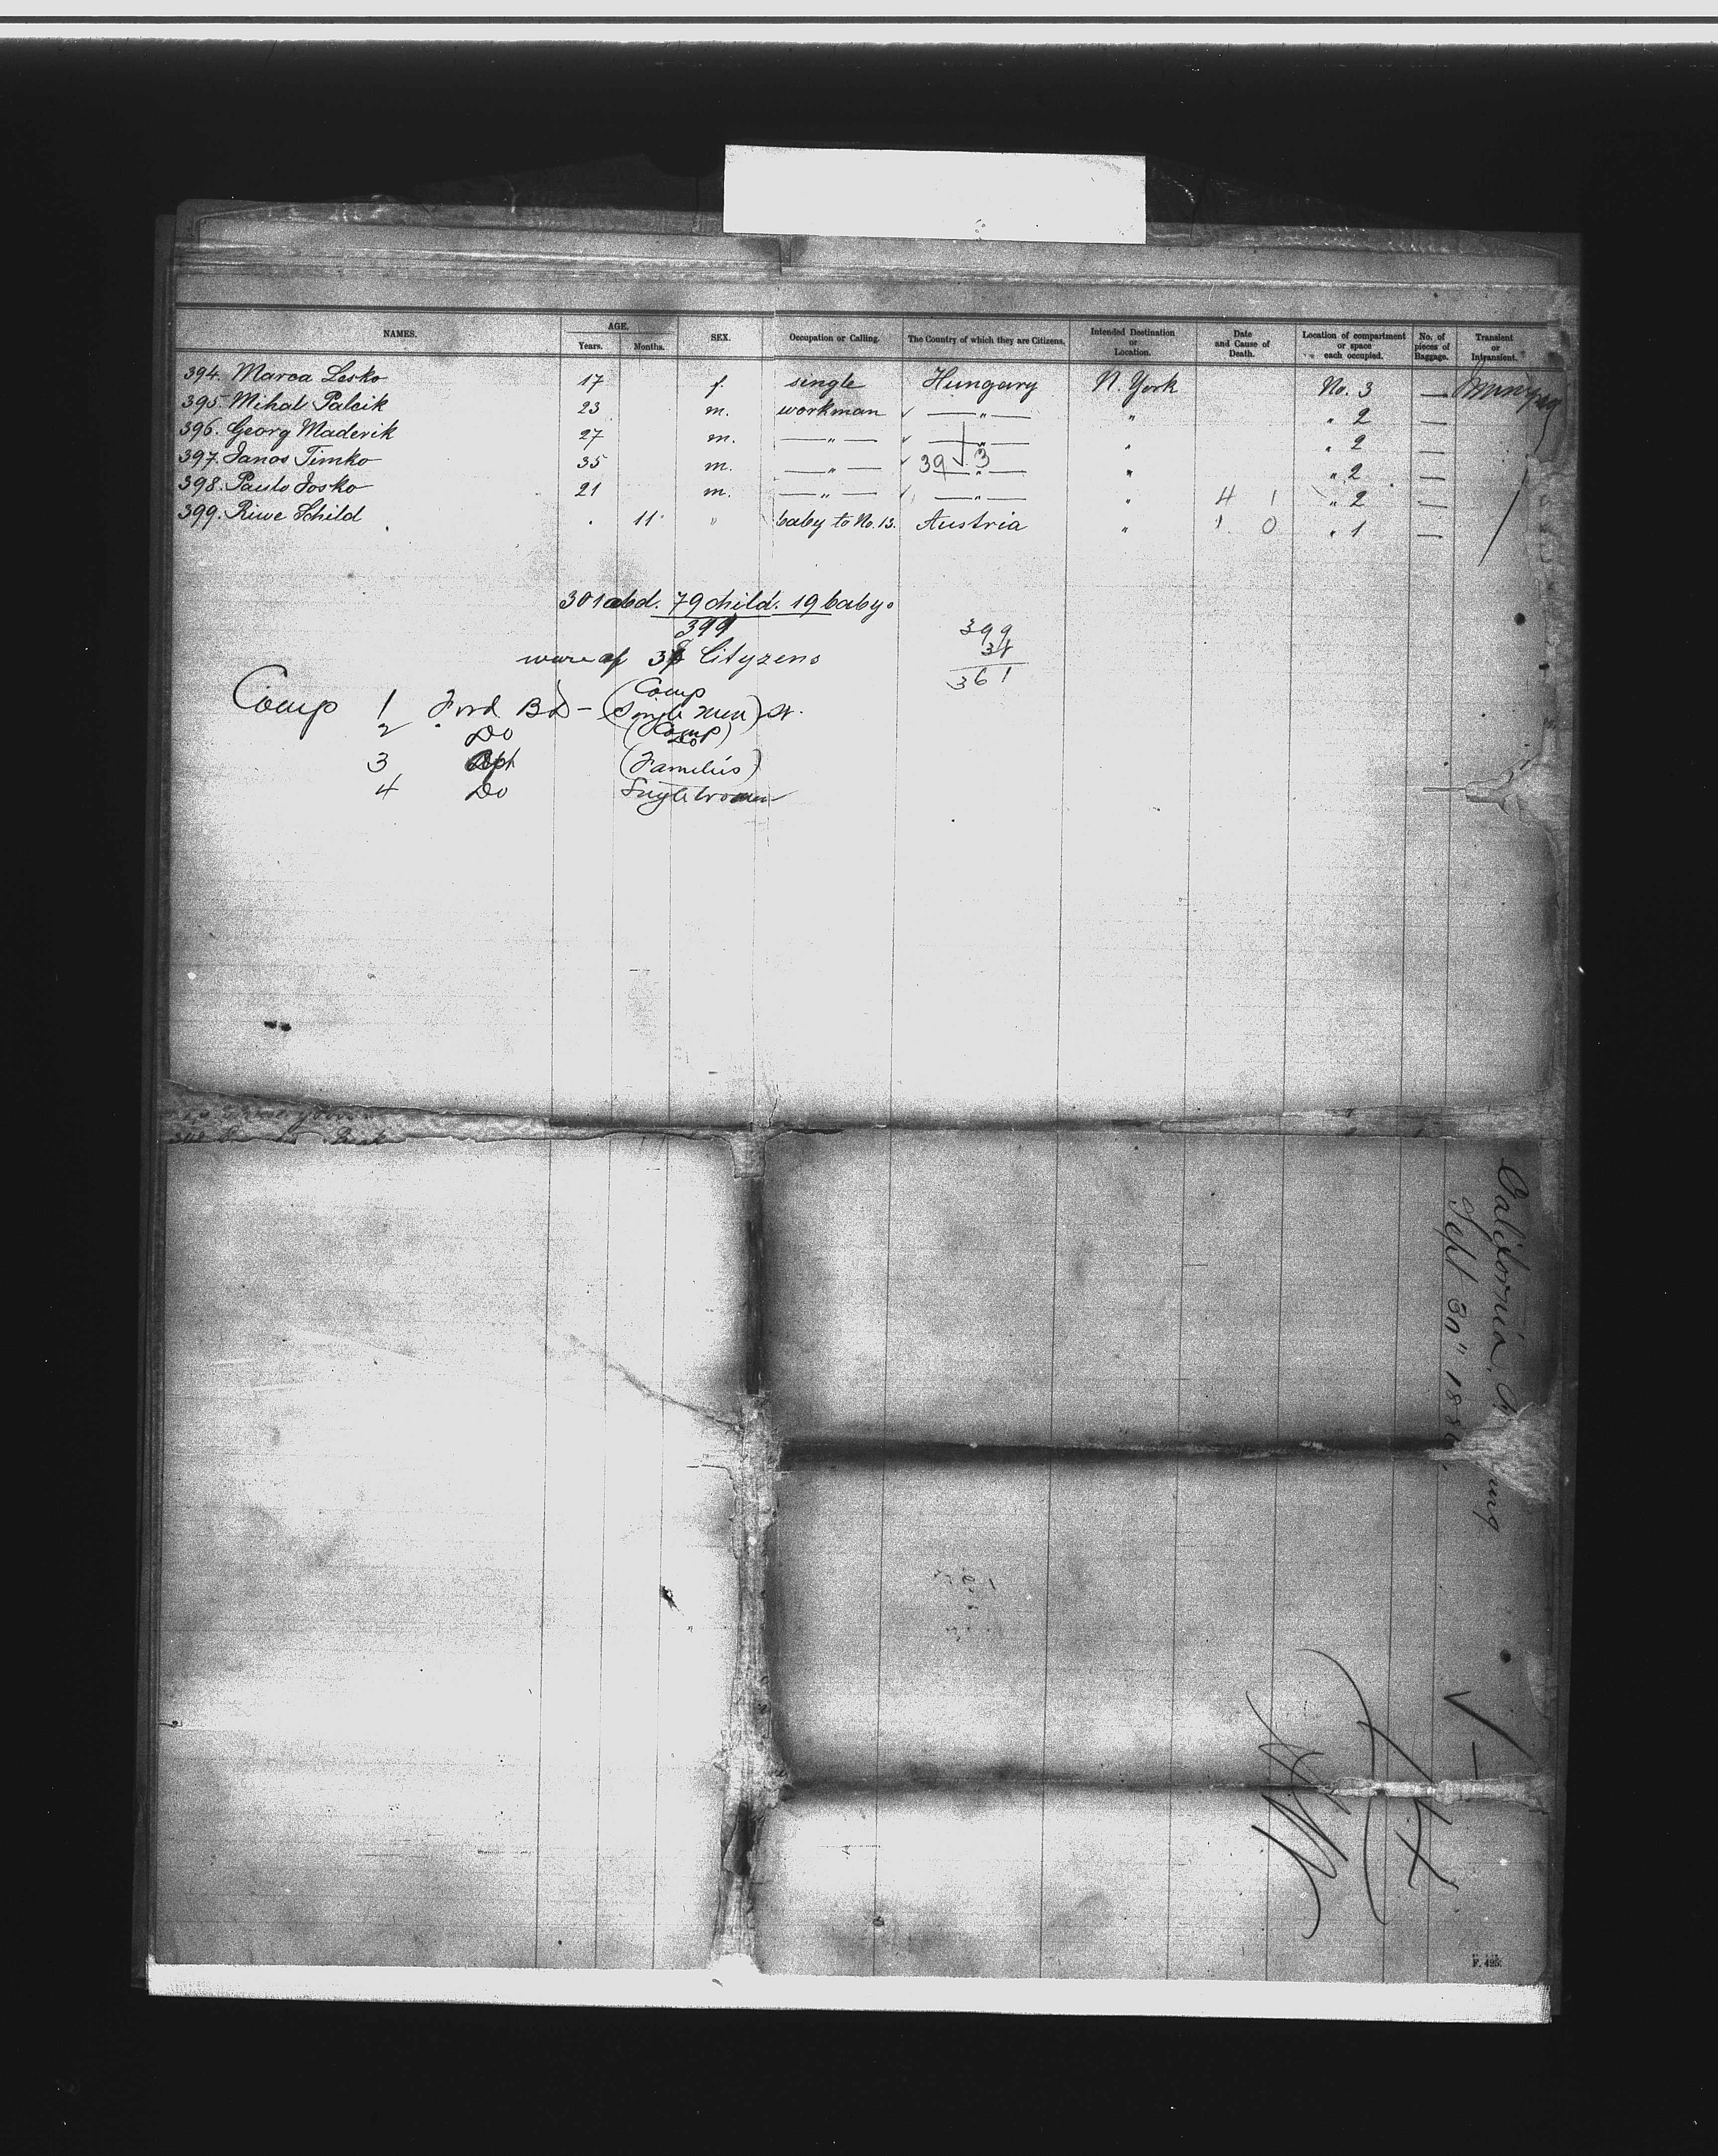 NAMES. AGE. Years. Months. SEX. Occupation or Calling. The Country of which they are Citizens. Intended Destination or Location. Date and Cause of Death. Location of compartment or space each occupied. No. of pieces of Baggage. Transient or Intransient.
394. Marca Lesko 17 f. single Hungary N. York No. 3 —
395. Mihal Palcik 23 m. workman —"— " " 2 —
396. Georg Maderik 27 m. —"— —"— " " 2 —
397. Janos Timko 35 m. —"— 39 3 —"— " " 2 —
398. Paulo Josko 21 m. —"— —"— " 4 1 " 2 —
399. Riwe Schild . 11 " baby to No. 13. Austria " 1 0 " 1 —
301 adad. 79 child. 19 babys
399 399
were of 38 Cityzens 38
361
Comp
Comp 1 Ford Bd - (Single Men) St.
2 Do (Comp) Do
3 Aft (Families)
4 Do Single women
California,
Sept 30" 188
F. 425.